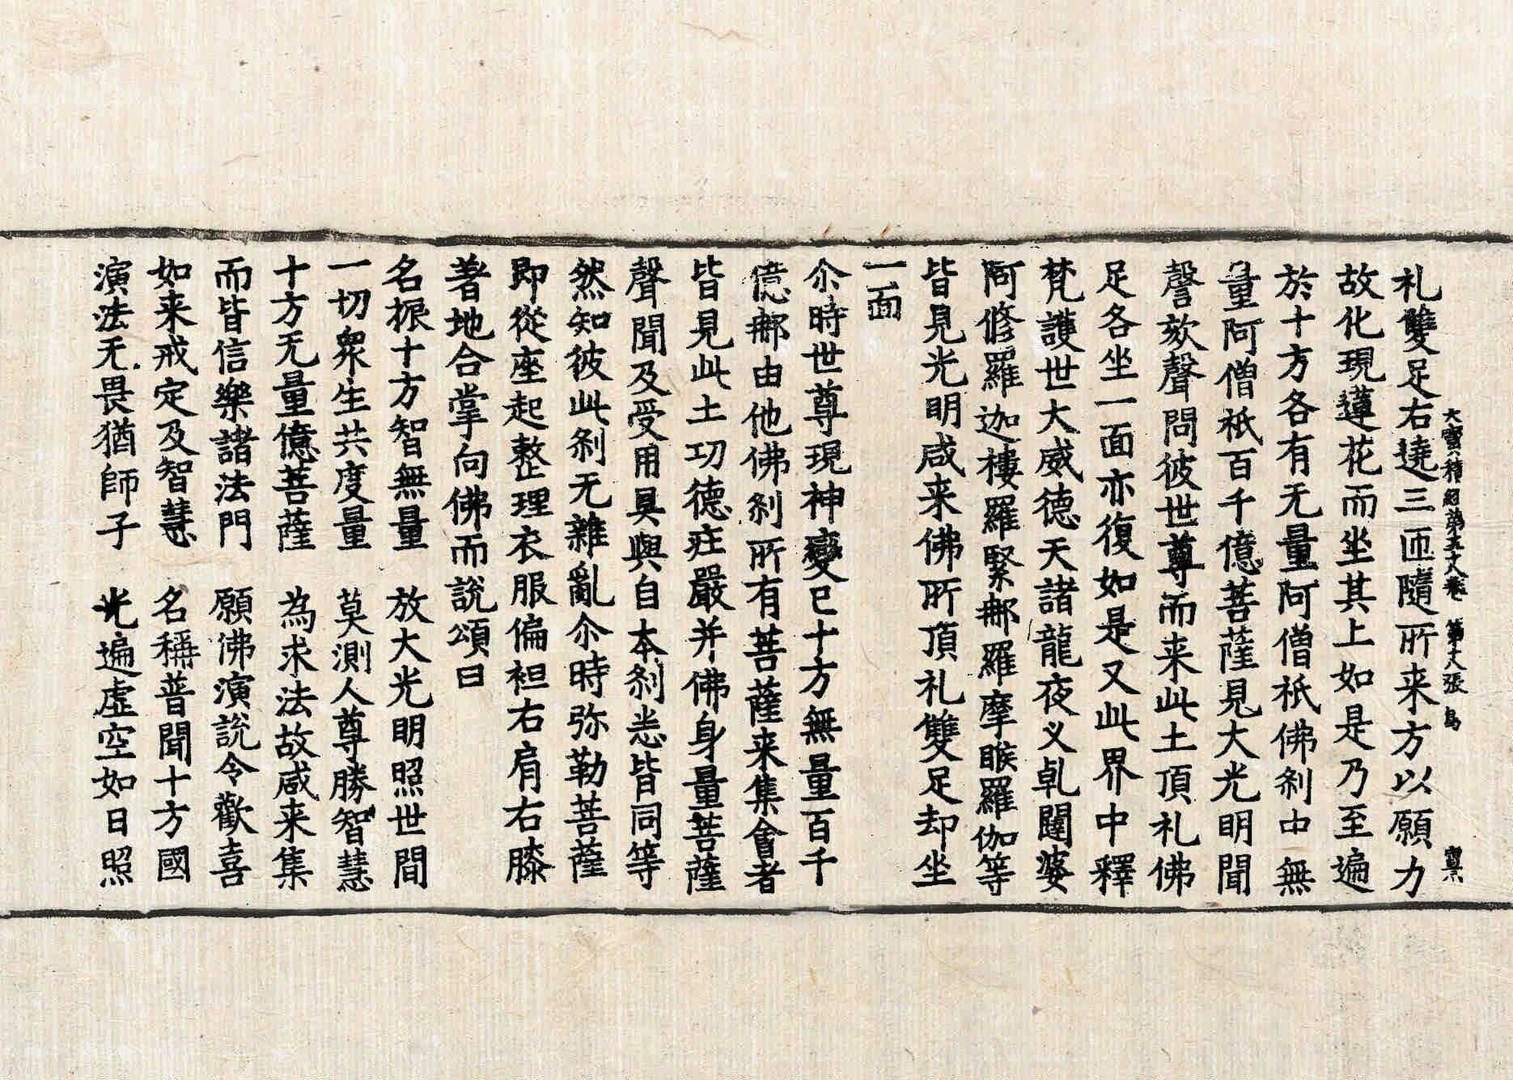 大寶積經第五十八卷 第七張 鳥
礼雙足右遶三匝隨所来方以願力
故化現蓮花而坐其上如是乃至遍
於十方各有无量阿僧祇佛刹中無
量阿僧祇百千億菩薩見大光明聞
謦欬聲問彼世尊而来此土頂礼佛
足各坐一面亦復如是又此界中釋
梵護世大威德天諸龍夜义乹闥婆
阿修羅迦樓羅緊那羅摩睺羅伽等
皆見光明咸来佛所頂礼雙足却坐
一面
尒時世尊現神變已十方無量百千
億那由他佛刹所有菩薩来集會者
皆見此土功德庄嚴并佛身量菩薩
聲聞及受用具與自本刹悉皆同等
然知彼此刹无雜亂尒時弥勒菩薩
即從座起整理衣服偏袒右肩右膝
著地合掌向佛而說頌曰
名振十方智無量 放大光明照世間
一切衆生共度量 莫測人尊勝智慧
十方无量億菩薩 為求法故咸来集
而皆信樂諸法門 願佛演說令歡喜
如来戒定及智慧 名稱普聞十方國
演法无畏猶師子 光遍虛空如日照